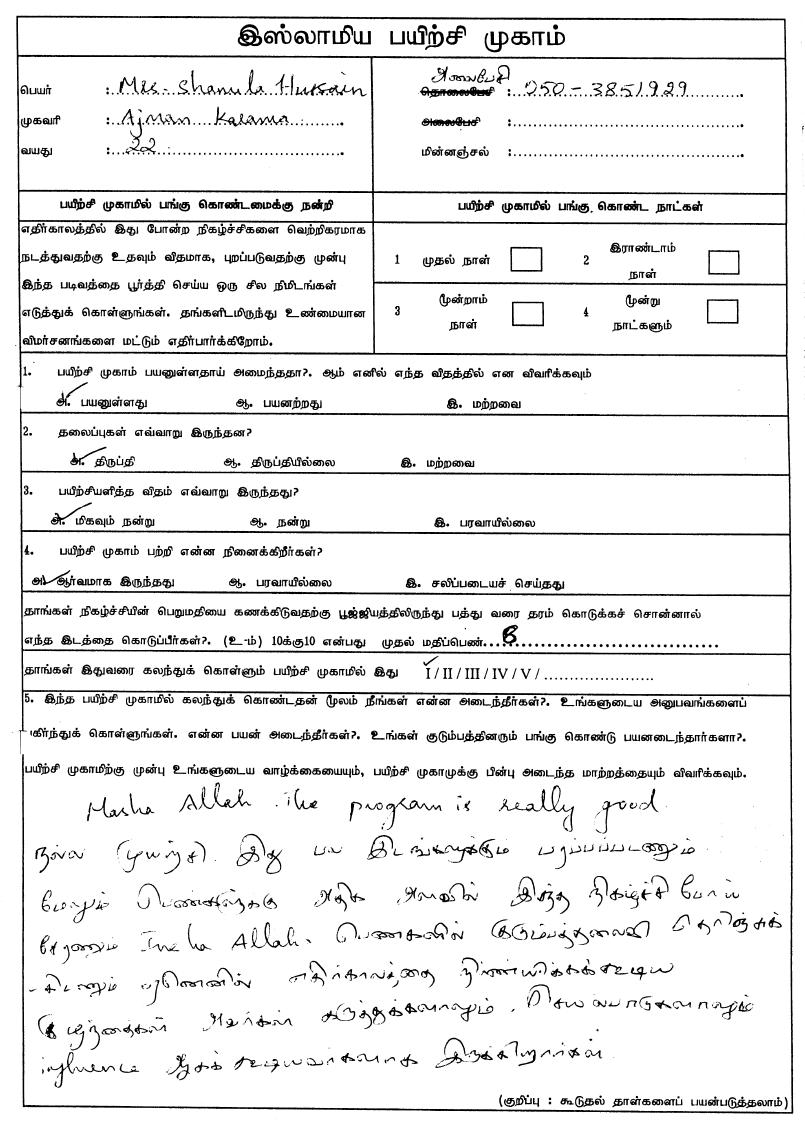 இஸ்லாமிய பயிற்சி முகாம்
பெயர் : Mrs. Shamila Hussain
முகவரி : Ajman Karama
வயது : 22
அலைபேசி
தொலைபேசி : 050-3851929
அலைபேசி :
மின்னஞ்சல் :
பயிற்சி முகாமில் பங்கு கொண்டமைக்கு நன்றி
எதிர்காலத்தில் இது போன்ற நிகழ்ச்சிகளை வெற்றிகரமாக
நடத்துவதற்கு உதவும் விதமாக, புறப்படுவதற்கு முன்பு
இந்த படிவத்தை பூர்த்தி செய்ய ஒரு சில நிமிடங்கள்
எடுத்துக் கொள்ளுங்கள். தங்களிடமிருந்து உண்மையான
விமர்சனங்களை மட்டும் எதிர்பார்க்கிறோம்.
பயிற்சி முகாமில் பங்கு கொண்ட நாட்கள்
1 முதல் நாள் 2 இராண்டாம் நாள்
3 மூன்றாம் நாள் 4 மூன்று நாட்களும்
1. பயிற்சி முகாம் பயனுள்ளதாய் அமைந்ததா?. ஆம் எனில் எந்த விதத்தில் என விவரிக்கவும்
அ. பயனுள்ளது ஆ. பயனற்றது இ. மற்றவை
2. தலைப்புகள் எவ்வாறு இருந்தன?
அ. திருப்தி ஆ. திருப்தியில்லை இ. மற்றவை
3. பயிற்சியளித்த விதம் எவ்வாறு இருந்தது?
அ. மிகவும் நன்று ஆ. நன்று இ. பரவாயில்லை
4. பயிற்சி முகாம் பற்றி என்ன நினைக்கிறீர்கள்?
அ. ஆர்வமாக இருந்தது ஆ. பரவாயில்லை இ. சலிப்படையச் செய்தது
தாங்கள் நிகழ்ச்சியின் பெறுமதியை கணக்கிடுவதற்கு பூஜ்ஜியத்திலிருந்து பத்து வரை தரம் கொடுக்கச் சொன்னால்
எந்த இடத்தை கொடுப்பீர்கள்?. (உ-ம்) 10க்கு10 என்பது முதல் மதிப்பெண்
தாங்கள் இதுவரை கலந்துக் கொள்ளும் பயிற்சி முகாமில் இது I / II / III / IV / V /
5. இந்த பயிற்சி முகாமில் கலந்துக் கொண்டதன் மூலம் நீங்கள் என்ன அடைந்தீர்கள்?. உங்களுடைய அனுபவங்களைப்
கிர்ந்துக் கொள்ளுங்கள். என்ன பயன் அடைந்தீர்கள்?. உங்கள் குடும்பத்தினரும் பங்கு கொண்டு பயனடைந்தார்களா?.
பயிற்சி முகாமிற்கு முன்பு உங்களுடைய வாழ்க்கையையும், பயிற்சி முகாமுக்கு பின்பு அடைந்த மாற்றத்தையும் விவரிக்கவும்.
Masha Allah. The program is really good
நல்ல முயற்சி. இது பல இடங்களுக்கும் பரப்பப்படணும்
மேலும் பெண்களுக்கு அதிக அளவில் இந்த நிகழ்ச்சி போய்
சேரணும் Insha Allah. பெண்களின் குடும்பத்தலைவி தெரிஞ்சுக்
கிடணும் எதிர்காலத்தை நிர்ணயிக்கக்கூடிய
குழந்தைகள் அவர்கள் கருத்துக்களாலும், செயல்பாடுகளாலும்
influence ஆகக் கூடியவர்களாக இருக்கிறார்கள்.
(குறிப்பு : கூடுதல் தாள்களைப் பயன்படுத்தலாம்)